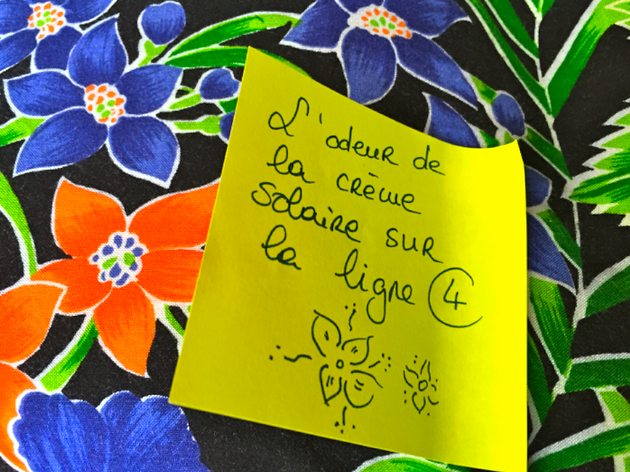 L'odeur de
la crème
solaire sur
la ligne 4